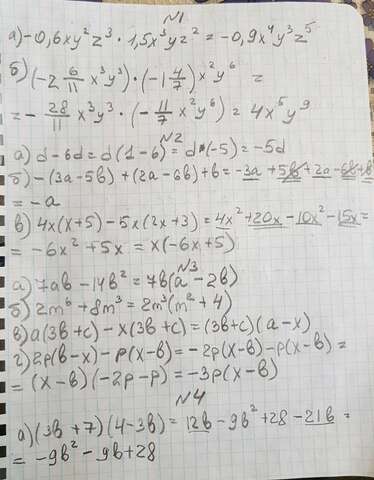 №1
а) -0,6xy²z³ · 1,5x³yz² = -0,9x⁴y³z⁵
б) (-2 6/11 x³y³) · (-1 4/7) x²y⁶ =
= - 28/11 x³y³ · (- 11/7 x²y⁶) = 4x⁵y⁹
№2
а) d - 6d = d(1-6) = d·(-5) = -5d
б) -(3a-5b) + (2a-6b) + b = -3a + 5b + 2a - 6b + b
= -a
в) 4x(x+5) - 5x(2x+3) = 4x² + 20x - 10x² - 15x =
= -6x² + 5x = x(-6x+5)
№3
а) 7ab - 14b² = 7b(a - 2b)
б) 2m⁶ + 8m³ = 2m³(m² + 4)
в) a(3b+c) - x(3b+c) = (3b+c)(a-x)
г) 2p(b-x) - p(x-b) = -2p(x-b) - p(x-b) =
= (x-b)(-2p-p) = -3p(x-b)
№4
а) (3b+7)(4-3b) = 12b - 9b² + 28 - 21b =
= -9b² - 9b + 28